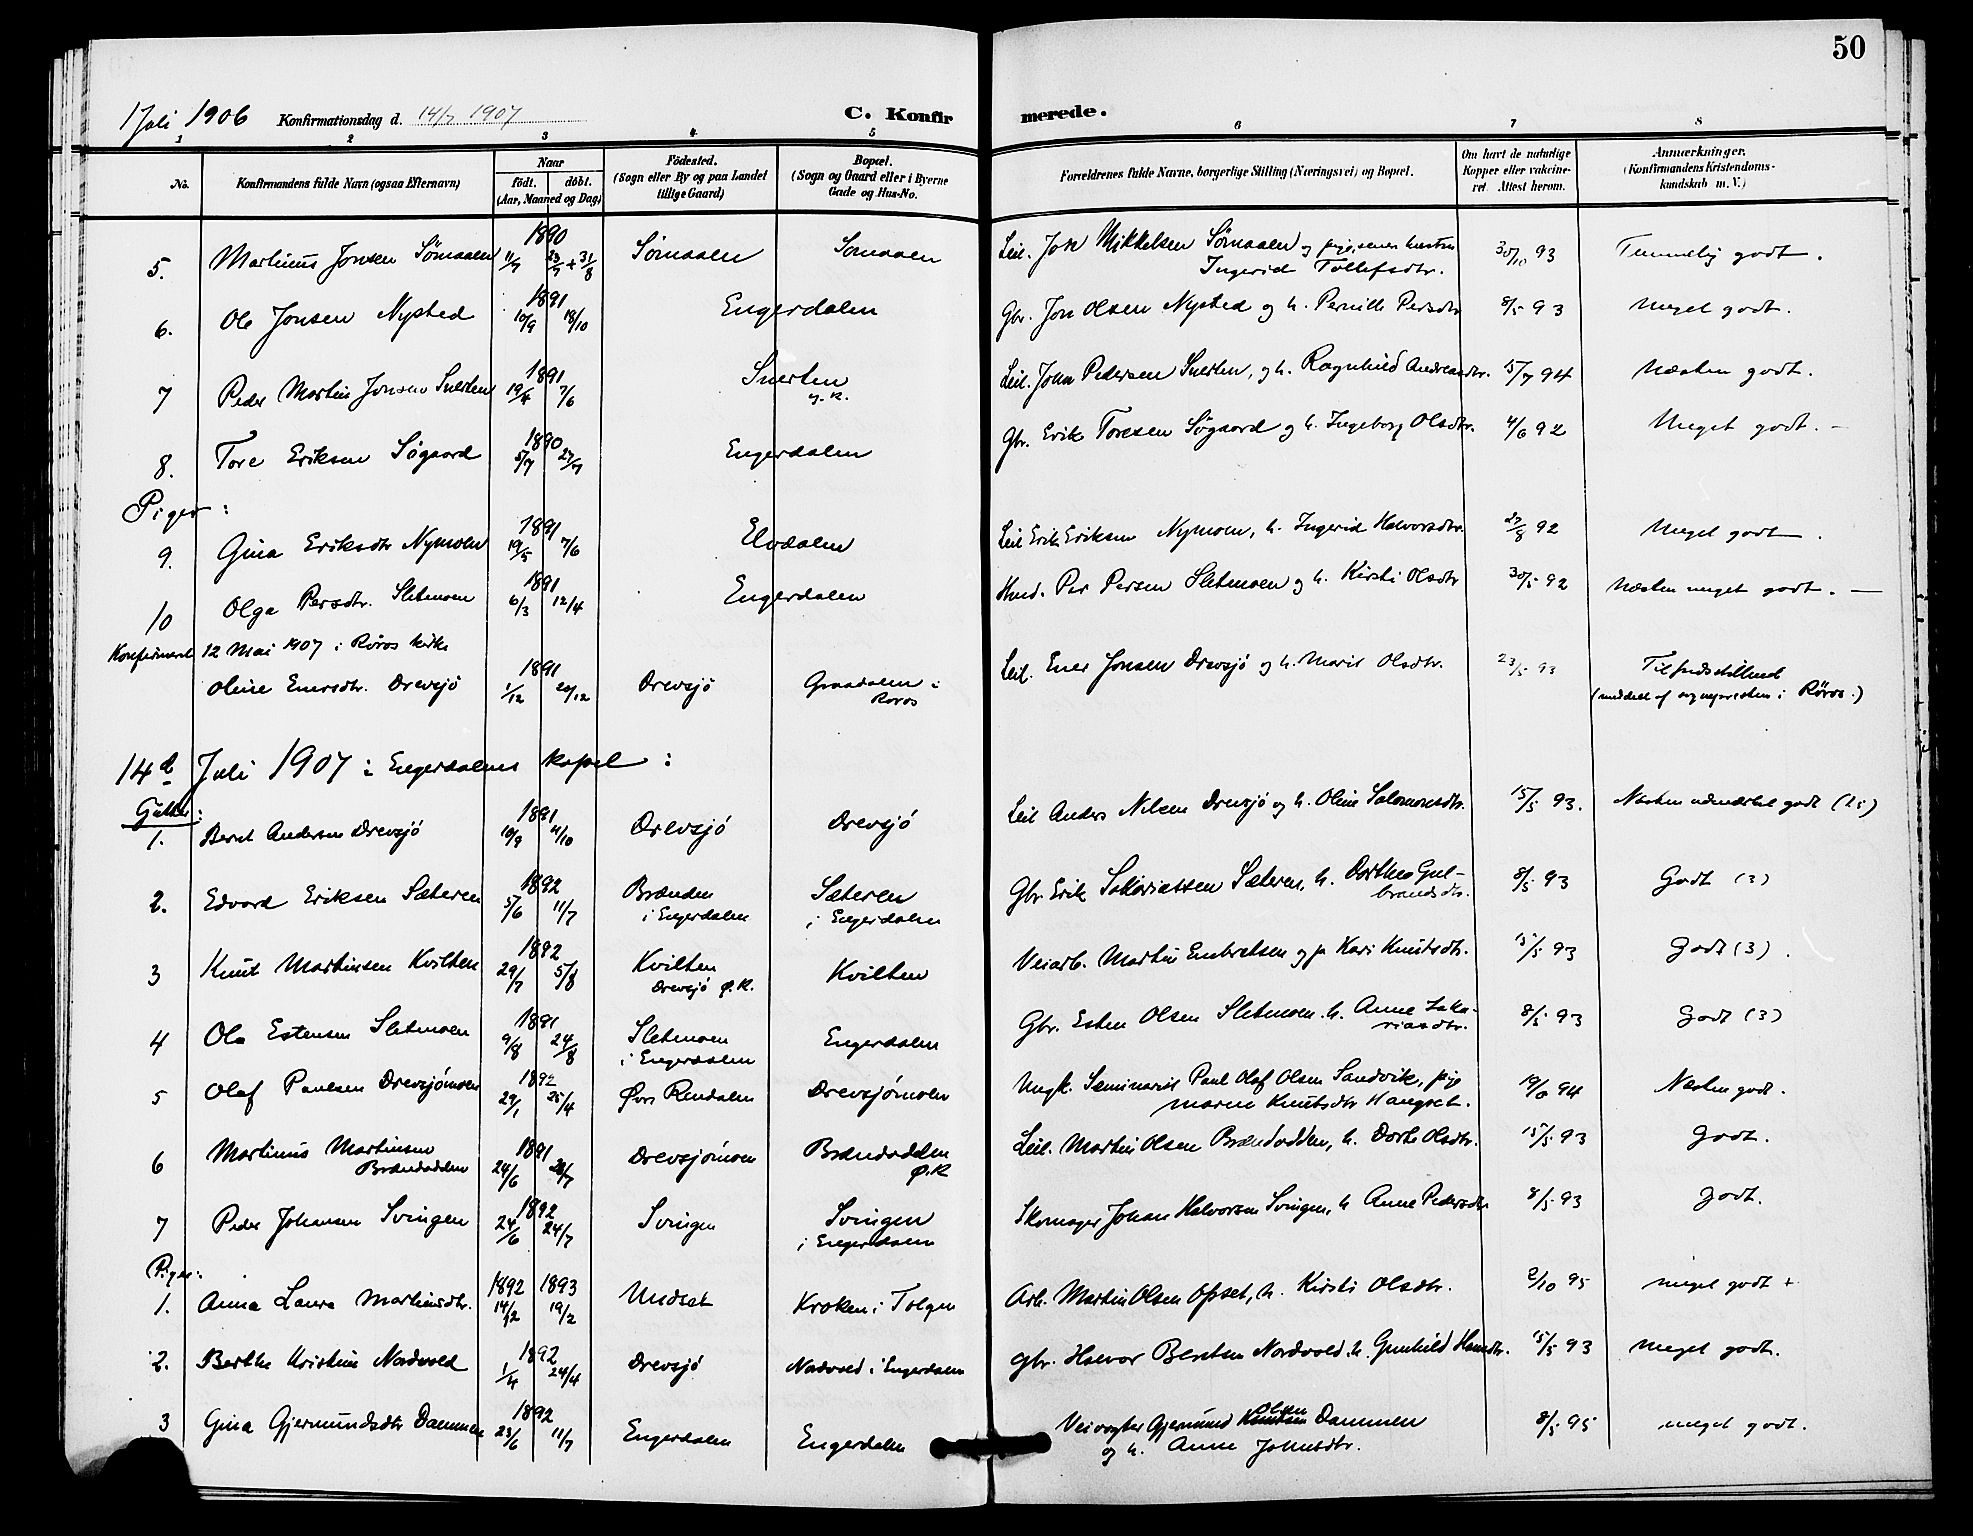 50
1 Juli 1906 Konfirmationsdag d. 14/7 1907 C. Konfirmerede.
1 2 3 4 5 6 7 8
No. Konfirmandens fulde Navn (ogsaa Efternavn) Naar født. døbt. (Aar, Maaned og Dag) Födested. (Sogn eller By og paa Landet tillige Gaard) Bopæl. (Sogn og Gaard eller i Byerne Gade og Hus-No. Forældrenes fulde Navne, borgerlige Stilling (Næringsvei) og Bopæl. Om havt de naturlige Kopper eller vakcineret. Attest herom. Anmærkninger. (Konfirmandens Kristendomskundskab m. V.)
5. Martinus Jonsen Sømaalen 1890 11/7 23/7 + 31/8 Sømaalen Sømaalen Leil. Jon Mikkelsen Sømaalen og pige, senere hustru Ingerid Tollefsdtr. 30/10 93 Temmelig godt.
6. Ole Jonsen Nysted 1891 10/9 18/10 Engerdalen Gbr. Jon Olsen Nysted og h. Pernille Persdtr 8/5 93 Meget godt.
7 Peder Martin Jonsen Snerten 1891 19/4 7/6 Snerten Leil. John Pedersen Snerten, og h. Ragnhild Andreasdtr. 5/7 94 Næsten godt.
8. Tore Eriksen Søgaard 1890 5/7 27/7 Engerdalen Gbr. Erik Toresen Søgaard og h. Ingeborg Olsdtr. 4/6 92 Meget godt. -
Piger:
9. Gina Eriksdtr Nymoen 1891 19/5 7/6 Elvdalen Leil Erik Eriksen Nymoen, h. Ingerid Halvorsdtr. 27/8 92 Meget godt.
10 Olga Persdtr. Sletmoen 1891 6/3 12/4 Engerdalen Husm. Per Persen Sletmoen og h. Kirsti Olsdtr 30/5 92 Næsten meget godt. -
Konfirmeret 12 Mai 1907 i Røros kirke
Oline Enersdtr. Drevsjø 1891 1/12 20/12 Drevsjø Graadalen i Røros Leil. Ener Jonsen Drevsjø og h. Marit Olsdtr. 23/5 93 Tilfredsstillende (meddelt af sognepresten i Røros.)
14de Juli 1907 i Engerdalens kapel:
Gutter:
1. Bernt Andersen Drevsjø 1891 10/9 4/10 Drevsjø Drevsjø Leil Anders Nilsen Drevsjø og h. Oline Salomonsdtr. 15/5 93. Næsten udmærket godt (1,5)
2. Edvard Eriksen Sæteren 1892 5/6 11/7 Brænden i Engerdalen Sæteren i Engerdalen Gbr Erik Sakariassen Sæteren, h. Dorthea Gulbrandsdtr. 8/5 93 Godt (3)
3 Knut Martinsen Kvilten 1892 29/7 5/8 Kvilten Drevsjø Ø.R. Kvilten Veiarb. Martin Embretsen og p Kari Knutsdtr. 15/5 93 Godt (3).
4 Ole Estensen Sletmoen 1891 9/8 24/8 Sletmoen i Engerdalen Engerdalen Gbr. Esten Olsen Sletmoen. h. Anne Zakariasdtr. 8/5 93 Godt (3)
5 Olaf Paulsen Drevsjømoen 1892 29/1 25/4 Øvr Rendalen Drevsjømoen Ungk. Seminarist Paul Olaf Olsen Sandvik, pige Maren Knutsdtr Hangset. 94 Næsten godt.
6 Martinus Martinsen Brændodden 1891 24/6 Drevsjømoen Brændodden Ø.R Leil. Martin Olsen Brændodden, h. Dorte Olsdtr. 15/5 93 Godt.
7 Peder Johansen Svingen 1892 24/6 24/7 Svingen Svingen i Engerdalen Skomager Johan Halvorsen Svingen, h Anne Pedersdtr 8/5 93 Godt.
Piger:
1. Anna Laura Martinsdtr. 1892 14/12 1893 19/2 Undset Kroken i Tolgen Arb. Martin Olsen Opset, h. Kirsti Olsdtr. 2/10 95 meget godt +
2. Berthe Kristine Nordvold 1892 1/4 24/4 Drevsjø Nordvold i Engerdalen Gbr. Halvor Berntsen Nordvold. h. Gunhild Hansdtr. 15/5 93 Meget godt.
3 Gina Gjermundsdtr Dammen 1892 23/6 11/7 Engerdalen Engerdalen Veivogter Gjermund Olsen Dammen og h. Anne Johnsdtr. 8/5 95 meget godt.